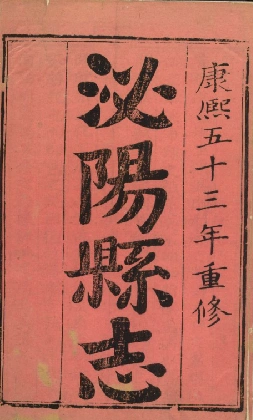 康熙五十三年重修
泌陽縣志